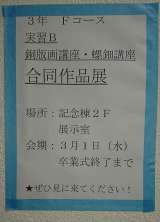 3年 Fコース
実習B
銅版画講座・螺鈿講座
合同作品展
場所：記念棟2F
展示室
会期：3月1日（水）
卒業式終了まで
★ぜひ見に来てください！